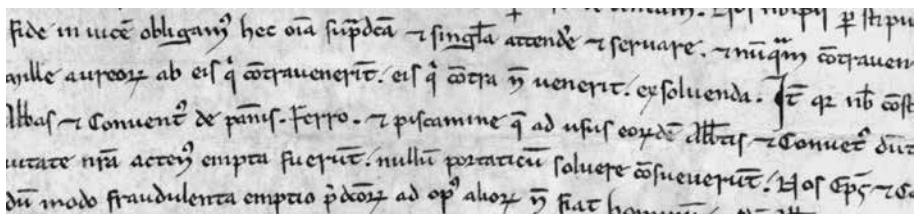 nos ip̄i ꝑ stipu
fide in uicē obligamꝰ hec oīa sup̄dc̄a ⁊ singl̄a attendeᷣ ⁊ seruare. ⁊ nūqᷓm ↄ̄trauen
mille aureoꝝ ab eis qͥ cōtrauenerīt. eis qͥ cōtra n̄ uenerit. exsoluenda. It̄ qꝛ nb̄ cōst
Abbas ⁊ Conuentꝰ de pānis. Ferro. ⁊ piscamine q̄ ad usus eorūdē Abb̄tis ⁊ Conuētꝰ dūt
uitate nr̄a actenꝰ empta fuerūt. nullū portaticū soluere cōsueuerūt. Nos Ep̄s ⁊ C
dū modo fraudulenta emptio p̄dc̄oꝝ ad opꝰ alioꝝ n̄ fiat